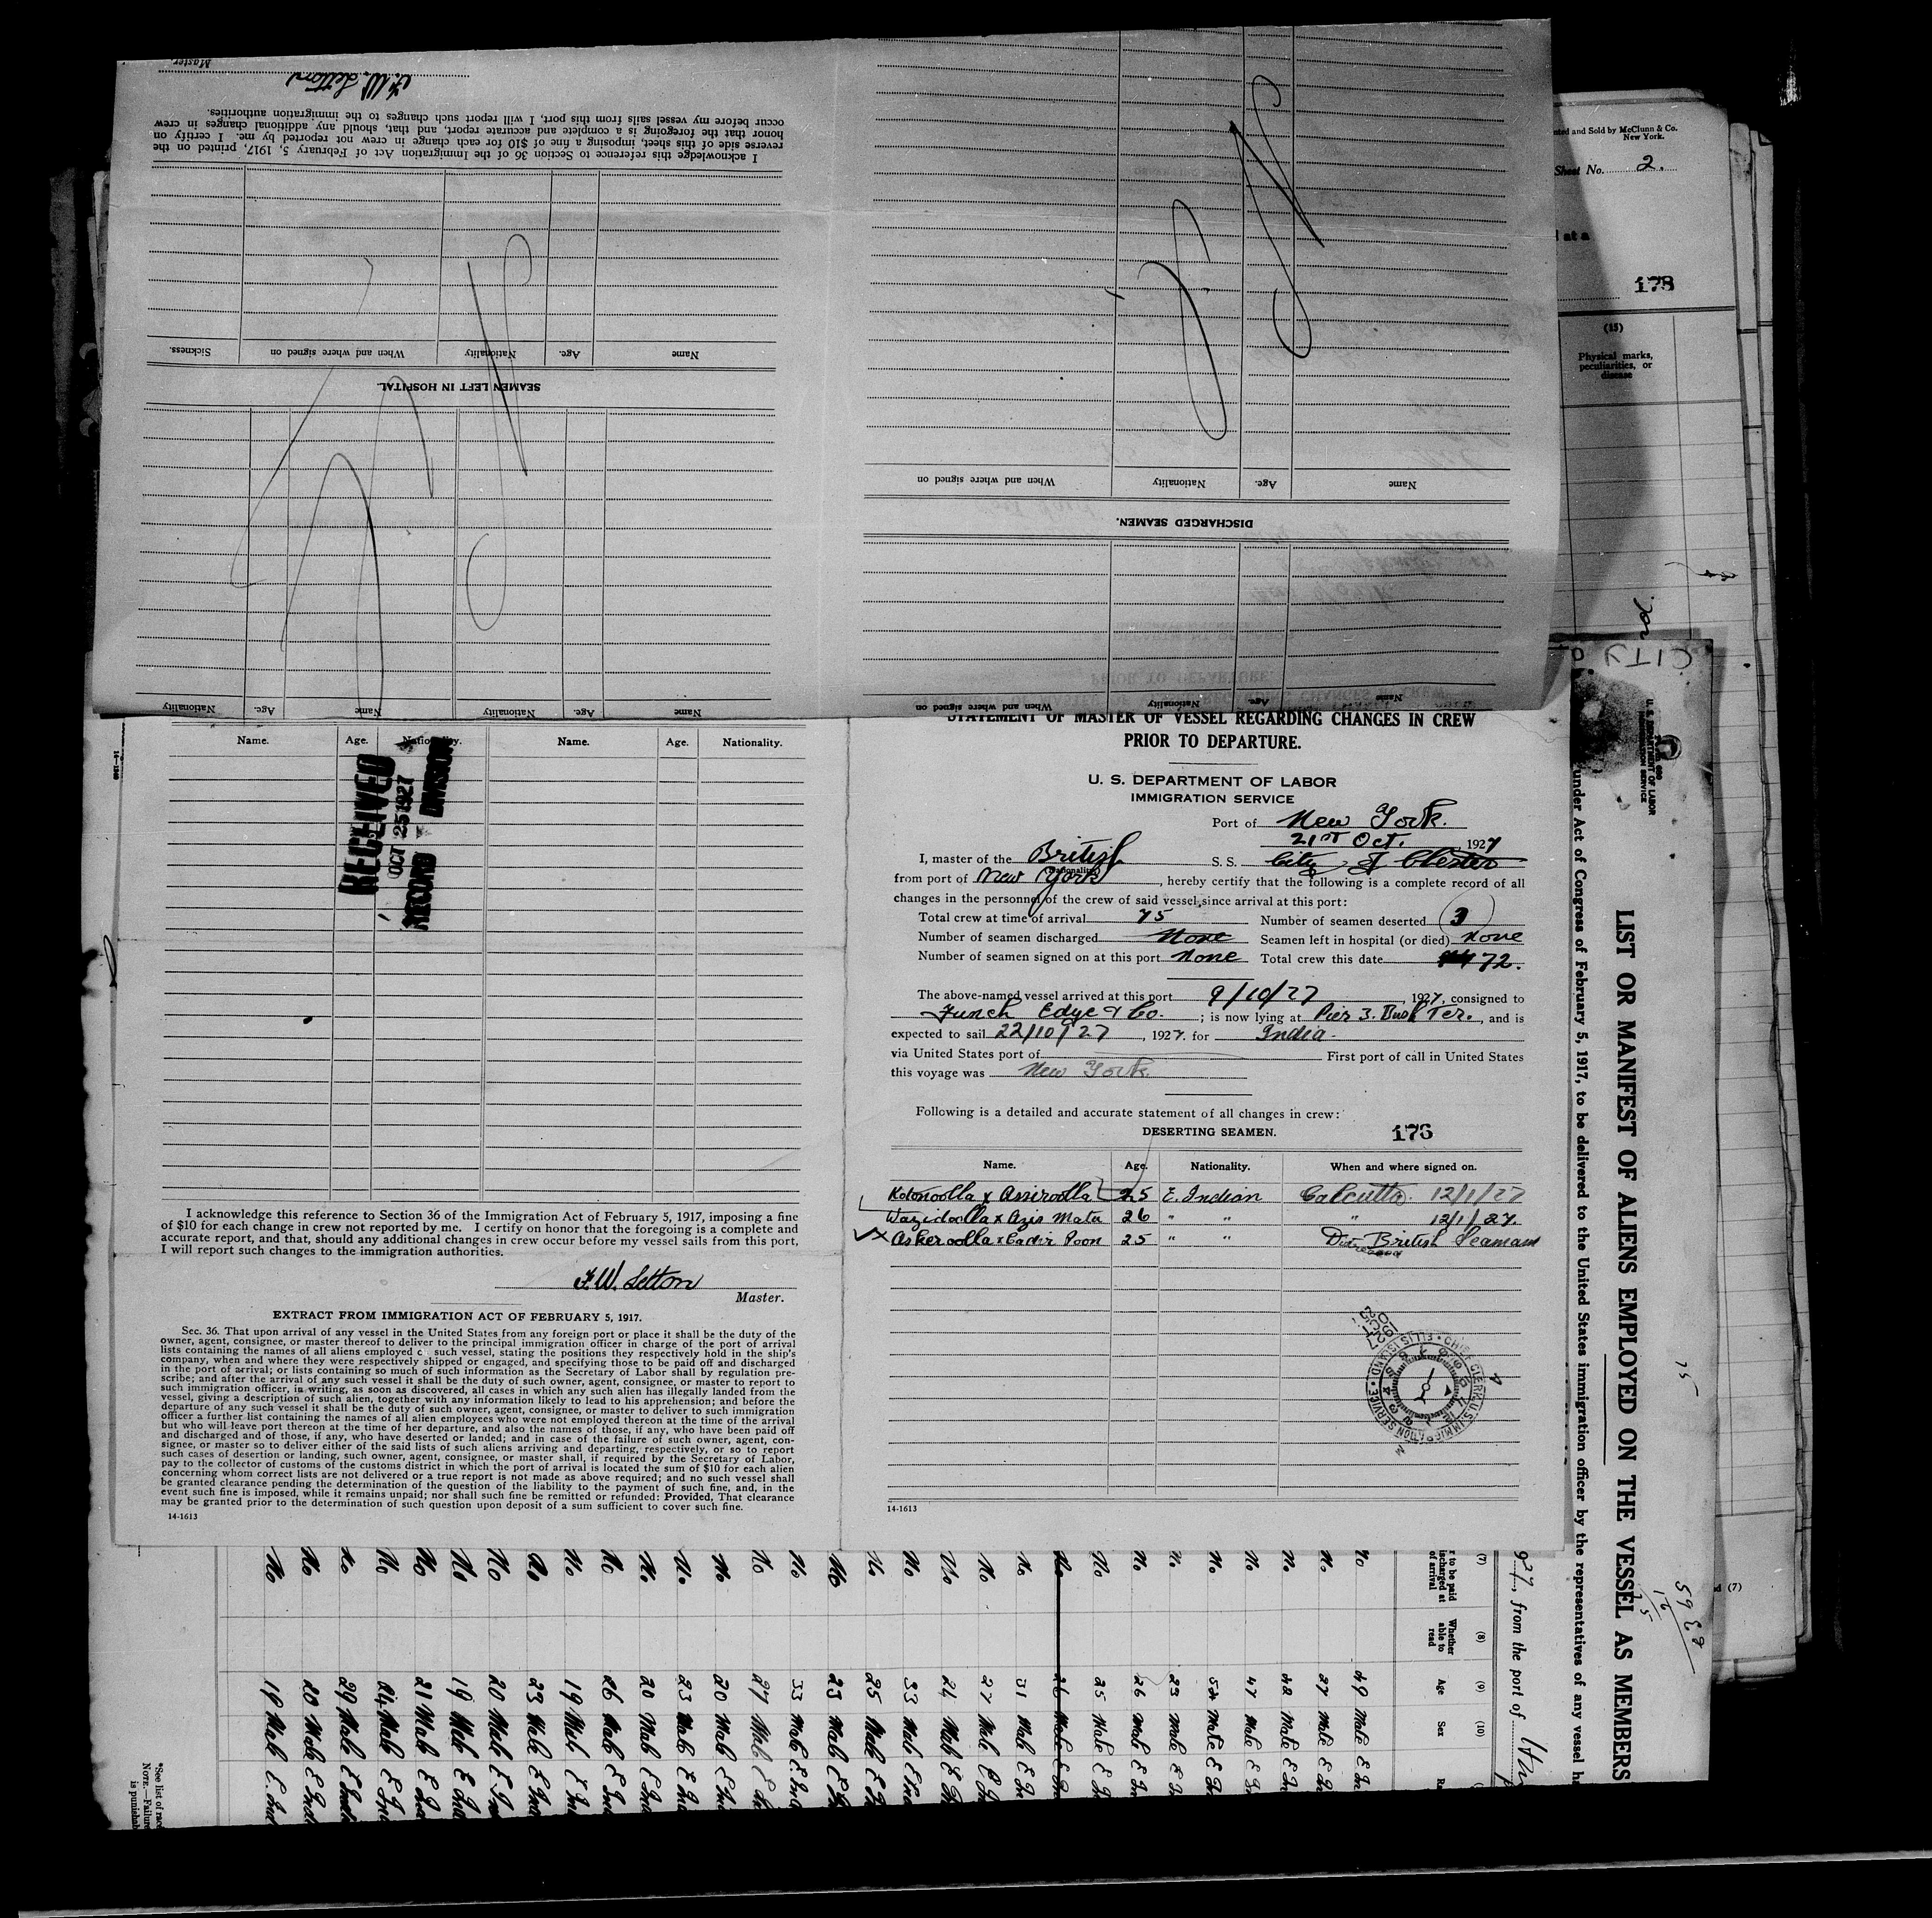 F. W. Setton
Master.
I acknowledge this reference to Section 36 of the Immigration Act of February 5, 1917, printed on the
reverse side of this sheet, imposing a fine of $10 for each change in crew not reported by me. I certify on
honor that the foregoing is a complete and accurate report, and that, should any additional changes in crew
occur before my vessel sails from this port, I will report such changes to the immigration authorities.
Name Age. Nationality When and where signed on Sickness.
SEAMEN LEFT IN HOSPITAL.
Name Age. Nationality Name Age. Nationality
Name Age. Nationality When and where signed on
DISCHARGED SEAMEN.
Name Age. Nationality When and where signed on
and Sold by McClunn & Co.
New York.
Sheet No. 2.
at a
178
(15)
Physical marks,
peculiarities, or
disease
Name. Age. Nationality. Name. Age. Nationality.
RECEIVED
OCT 25 1927
RECORD DIVISION
I acknowledge this reference to Section 36 of the Immigration Act of February 5, 1917, imposing a fine
of $10 for each change in crew not reported by me. I certify on honor that the foregoing is a complete and
accurate report, and that, should any additional changes in crew occur before my vessel sails from this port,
I will report such changes to the immigration authorities.
F. W. Setton
Master.
EXTRACT FROM IMMIGRATION ACT OF FEBRUARY 5, 1917.
Sec. 36. That upon arrival of any vessel in the United States from any foreign port or place it shall be the duty of the
owner, agent, consignee, or master thereof to deliver to the principal immigration officer in charge of the port of arrival
lists containing the names of all aliens employed on such vessel, stating the positions they respectively hold in the ship's
company, when and where they were respectively shipped or engaged, and specifying those to be paid off and discharged
in the port of arrival; or lists containing so much of such information as the Secretary of Labor shall by regulation pre-
scribe; and after the arrival of any such vessel it shall be the duty of such owner, agent, consignee, or master to report to
such immigration officer, in writing, as soon as discovered, all cases in which any such alien has illegally landed from the
vessel, giving a description of such alien, together with any information likely to lead to his apprehension; and before the
departure of any such vessel it shall be the duty of such owner, agent, consignee, or master to deliver to such immigration
officer a further list containing the names of all alien employees who were not employed thereon at the time of the arrival
but who will leave port thereon at the time of her departure, and also the names of those, if any, who have been paid off
and discharged and of those, if any, who have deserted or landed; and in case of the failure of such owner, agent, con-
signee, or master so to deliver either of the said lists of such aliens arriving and departing, respectively, or so to report
such cases of desertion or landing, such owner, agent, consignee, or master shall, if required by the Secretary of Labor,
pay to the collector of customs of the customs district in which the port of arrival is located the sum of $10 for each alien
concerning whom correct lists are not delivered or a true report is not made as above required; and no such vessel shall
be granted clearance pending the determination of the question of the liability to the payment of such fine, and, in the
event such fine is imposed, while it remains unpaid; nor shall such fine be remitted or refunded: Provided, That clearance
may be granted prior to the determination of such question upon deposit of a sum sufficient to cover such fine.
14-1613
STATEMENT OF MASTER OF VESSEL REGARDING CHANGES IN CREW
PRIOR TO DEPARTURE.
U. S. DEPARTMENT OF LABOR
IMMIGRATION SERVICE
Port of New York.
21st Oct. 1927
I, master of the British S. S. City of Chester
(Nationality)
from port of New York, hereby certify that the following is a complete record of all
changes in the personnel of the crew of said vessel since arrival at this port:
Total crew at time of arrival 75 Number of seamen deserted 3
Number of seamen discharged None Seamen left in hospital (or died) None
Number of seamen signed on at this port None Total crew this date 72.
The above-named vessel arrived at this port 9/10/27, 1927, consigned to
Funch Edye & Co.; is now lying at Pier 3. Bush Ter., and is
expected to sail 22/10/27, 1927. for India
via United States port of First port of call in United States
this voyage was New York
Following is a detailed and accurate statement of all changes in crew:
DESERTING SEAMEN. 176
Name. Age. Nationality. When and where signed on.
Kotonoolla x Assiroolla 25 E. Indian Calcutta. 12/1/27
Wazidoolla x Azis Matu 26 " " " 12/1/27.
Askeroolla x Cadir Poon 25 " " Distressed British Seaman
CHIEF CLERK U.S. IMMIGRATION SERVICE • ELLIS ISLAND
14-1613
CITY
U. S. DEPARTMENT OF LABOR
IMMIGRATION SERVICE
LIST OR MANIFEST OF ALIENS EMPLOYED ON THE VESSEL AS MEMBERS
under Act of Congress of February 5, 1917, to be delivered to the United States immigration officer by the representatives of any vessel
27, from the port of
(7) (8) (9) (10)
to be paid
discharged at
of arrival
Whether
able to
read
Age
Sex
No 49 Male E In
No 27 Male E In
No 42 Male E In
No 47 Male E In
No 52 Male E In
No 23 Male E In
No 26 Male E In
No 25 Male E In
No 26 Male E In
No 31 Male E In
No 27 Male E In
No 24 Male E In
No 33 Male E Ind
No 25 Male E In
No 23 Male E In
No 33 Male E Ind
No 27 Male E In
No 20 Male E Ind
No 23 Male E Ind
No 20 Male E Ind
No 26 Male E Ind
No 19 Male E Ind
No 23 Male E Ind
No 20 Male E Ind
No 19 Male E Ind
No 21 Male E Ind
No 24 Male E Ind
No 29 Male E Indi
No 20 Male E Ind
No 19 Male E. Ind
*See list of race
NOTE.—Failure
is punishab